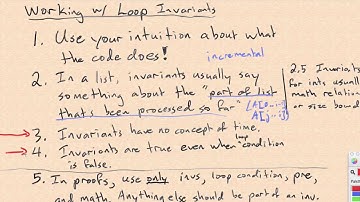 Working w/ Loop Invariants
1. Use your intuition about what
the code does!
incremental
2. In a list, invariants usually say
something about the "part of list
that's been processed so far" (A[0…i-1]
A[j…i])
2.5 Invariants
for ints usually
math relation
or size bound
3. Invariants have no concept of time.
4. Invariants are true even when loop condition
is false.
5. In proofs, use only invs, loop condition, pre,
and math. Anything else should be part of an inv.